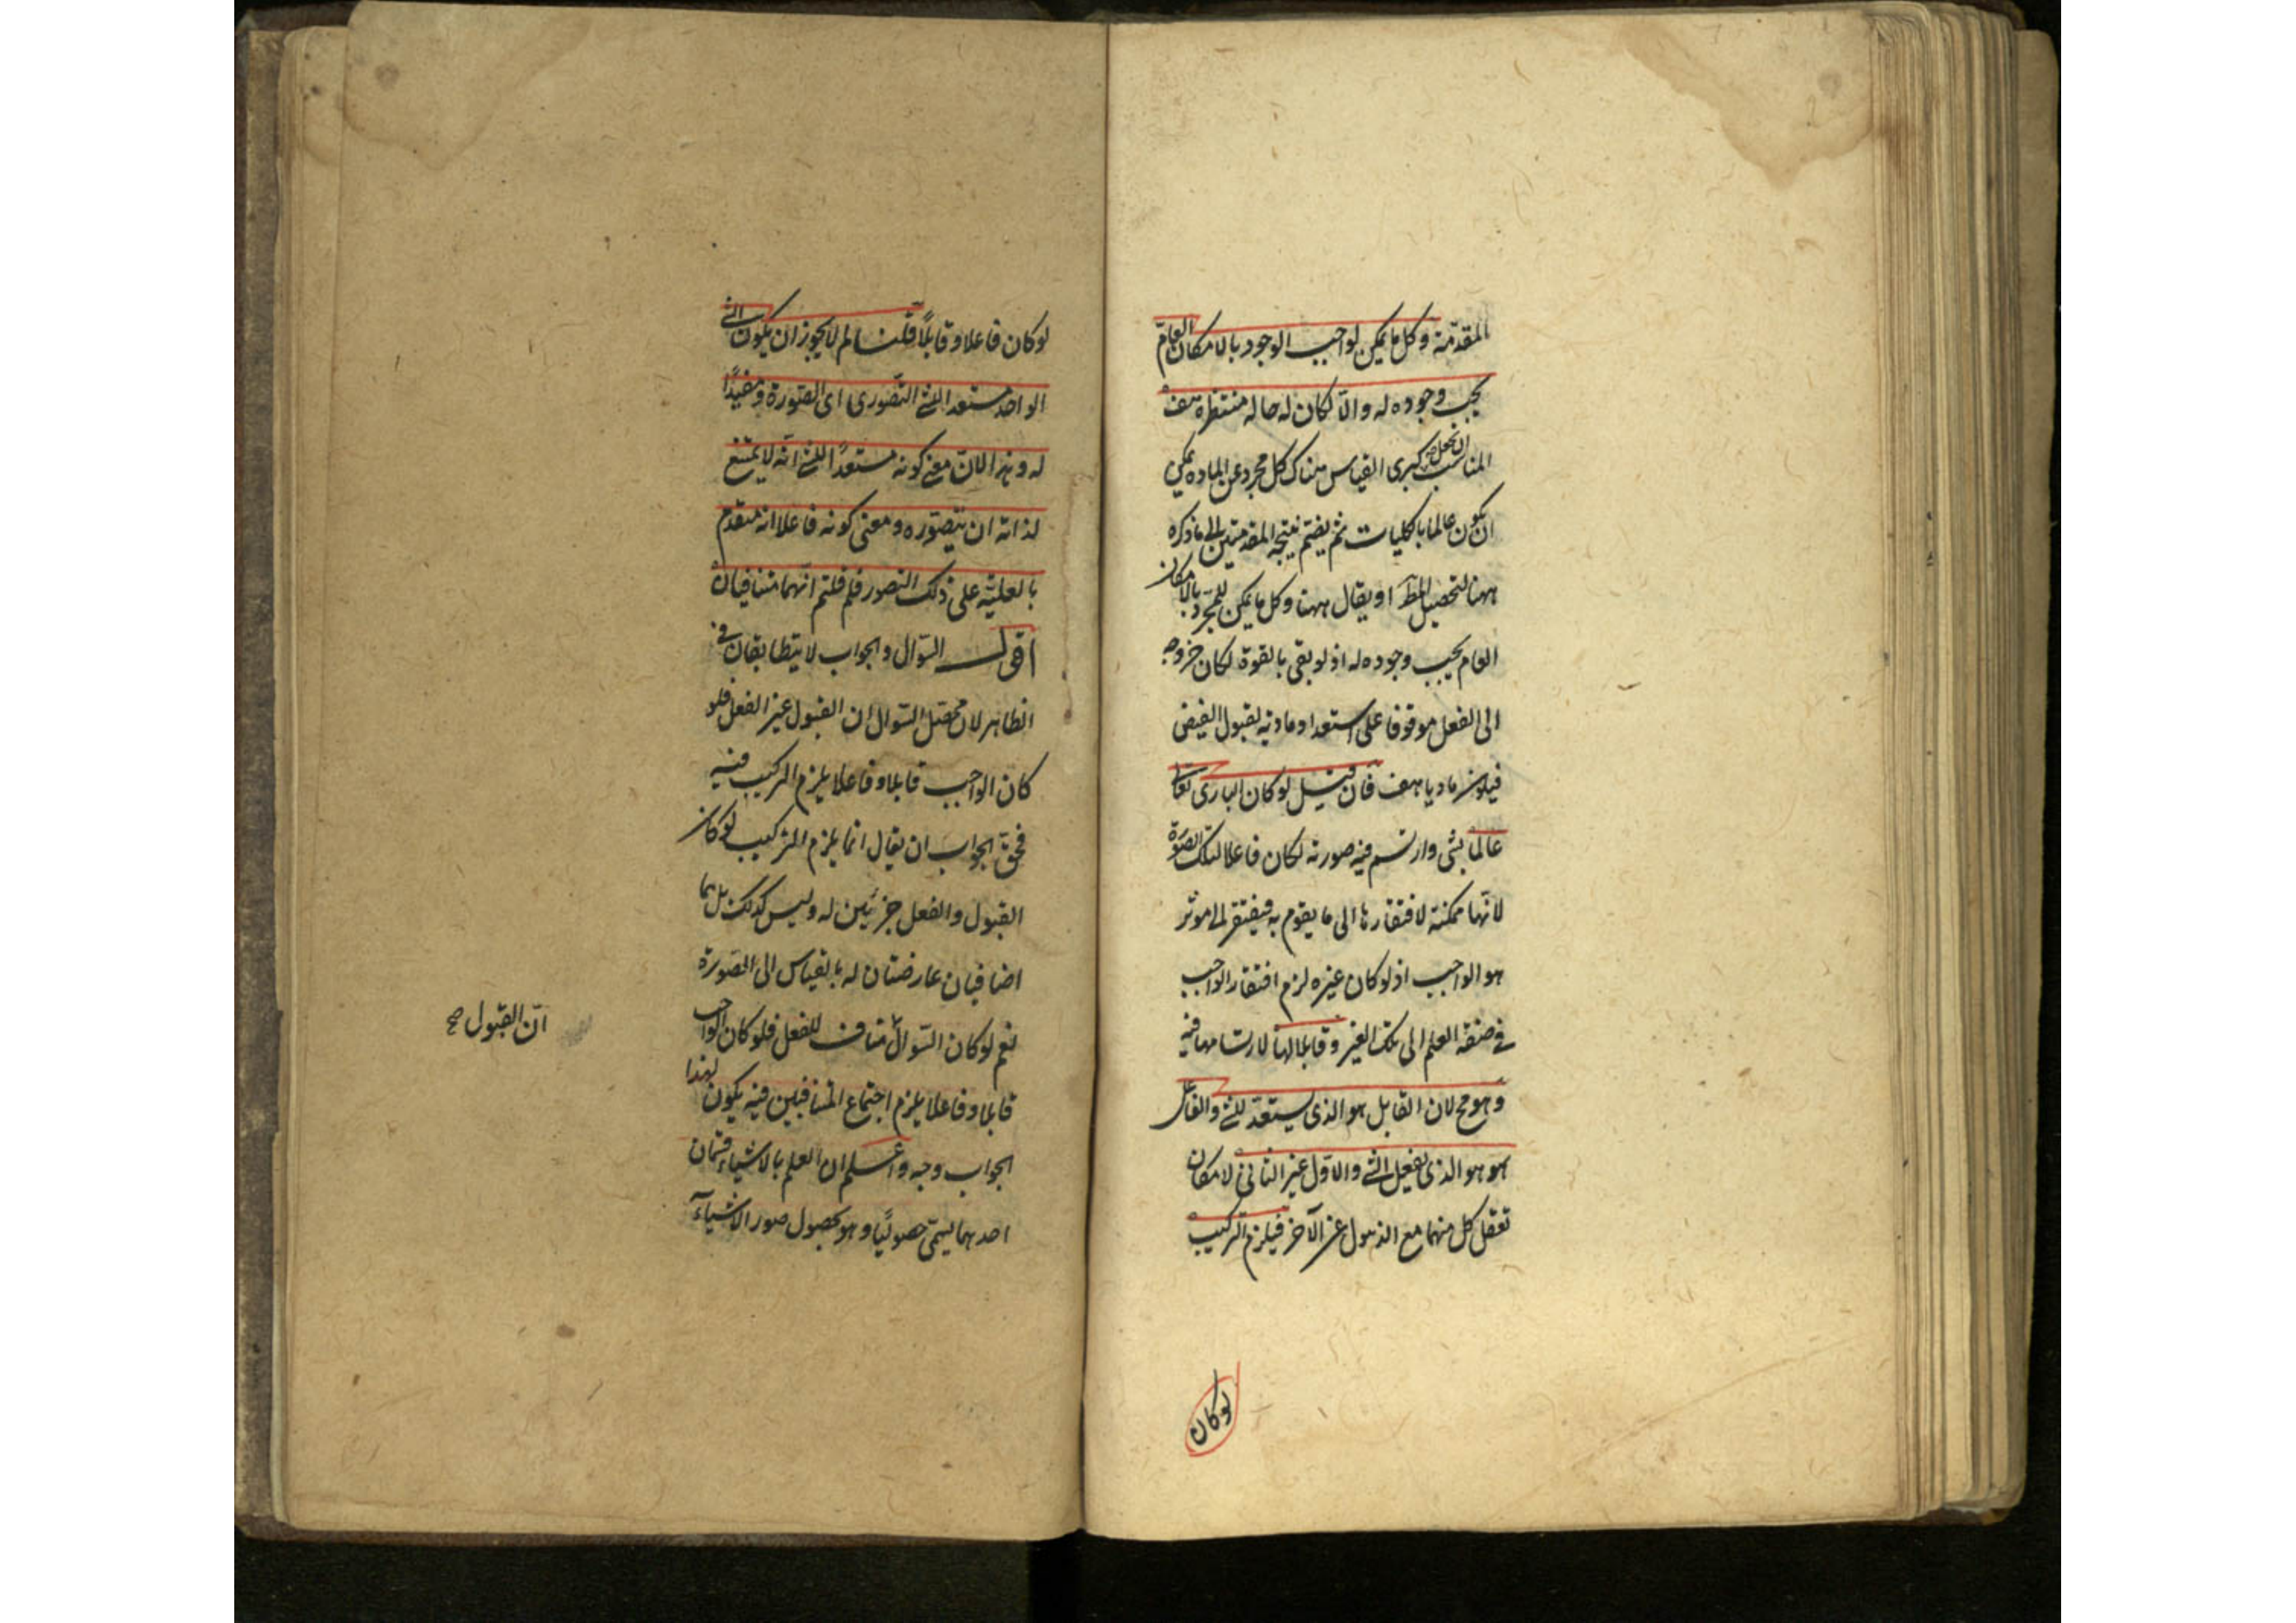 المقدمة وكل ما يمكن لواجب الوجود بالامكان العام
يجب وجوده له والا لكان له حالة منتظرة هف
المناسب ان يجعل كبرى القياس هناك كل مجرد عن المادة يمكن
ان يكون عالما بالكليات ثم يضم نتيجة المقدمتين الى ما ذكره
ههنا لتحصيل المط او يقال ههنا وكل ما يمكن للمجرد بالامكان
العام يجب وجوده له اذ لو بقى بالقوة لكان خروجه
الى الفعل موقوفا على استعداد مادته لقبول الفيض
فيكون ماديا هف فان قيل لو كان البارى تعالى
عالما بشئ وارتسم فيه صورته لكان فاعلا لتلك الصورة
لانها ممكنة لافتقارها الى ما يقوم به فيفتقر الى موثر
هو الواجب اذ لو كان غيره لزم افتقار الواجب
فى صفة العلم الى تلك الغير وقابلا لها لارتسامها فيه
وهو مح لان القابل هو الذى يستعد للشئ والفاعل
هو هو الذى يفعل الشئ والاول غير الثانى لامكان
تعقل كل منهما مع الذهول عن الآخر فيلزم التركيب
لو كان
لو كان فاعلا وقابلاً قلنا لم لا يجوز ان يكون الشئ
الواحد مستعدا للشئ التصورى اى الصورة ومفيدًا
له وهذا لان معنى كونه مستعدًا للشئ انه لا يمتنع
لذاته ان يتصوره ومعنى كونه فاعلا انه متقدم
بالعلية على ذلك التصور فلم قلتم انهما متنافيان
اقول السؤال والجواب لا يتطابقان فى
الظاهر لان محصل السؤال ان القبول غير الفعل فلو
كان الواجب قابلا وفاعلا يلزم التركيب فيه
فحق الجواب ان يقال انما يلزم التركيب لو كان
القبول والفعل جزئين له وليس كذلك بل هما
اضافيان عارضتان له بالقياس الى الصورة
نعم لو كان السؤال مناف للفعل فلو كان الواجب
قابلا وفاعلا يلزم اجتماع المتنافيين فيه يكون لهذا
الجواب وجه واعلم ان العلم بالاشياء قسمان
احدهما يسمى حصوليًا وهو بحصول صور الاشياء
ان القبول صح